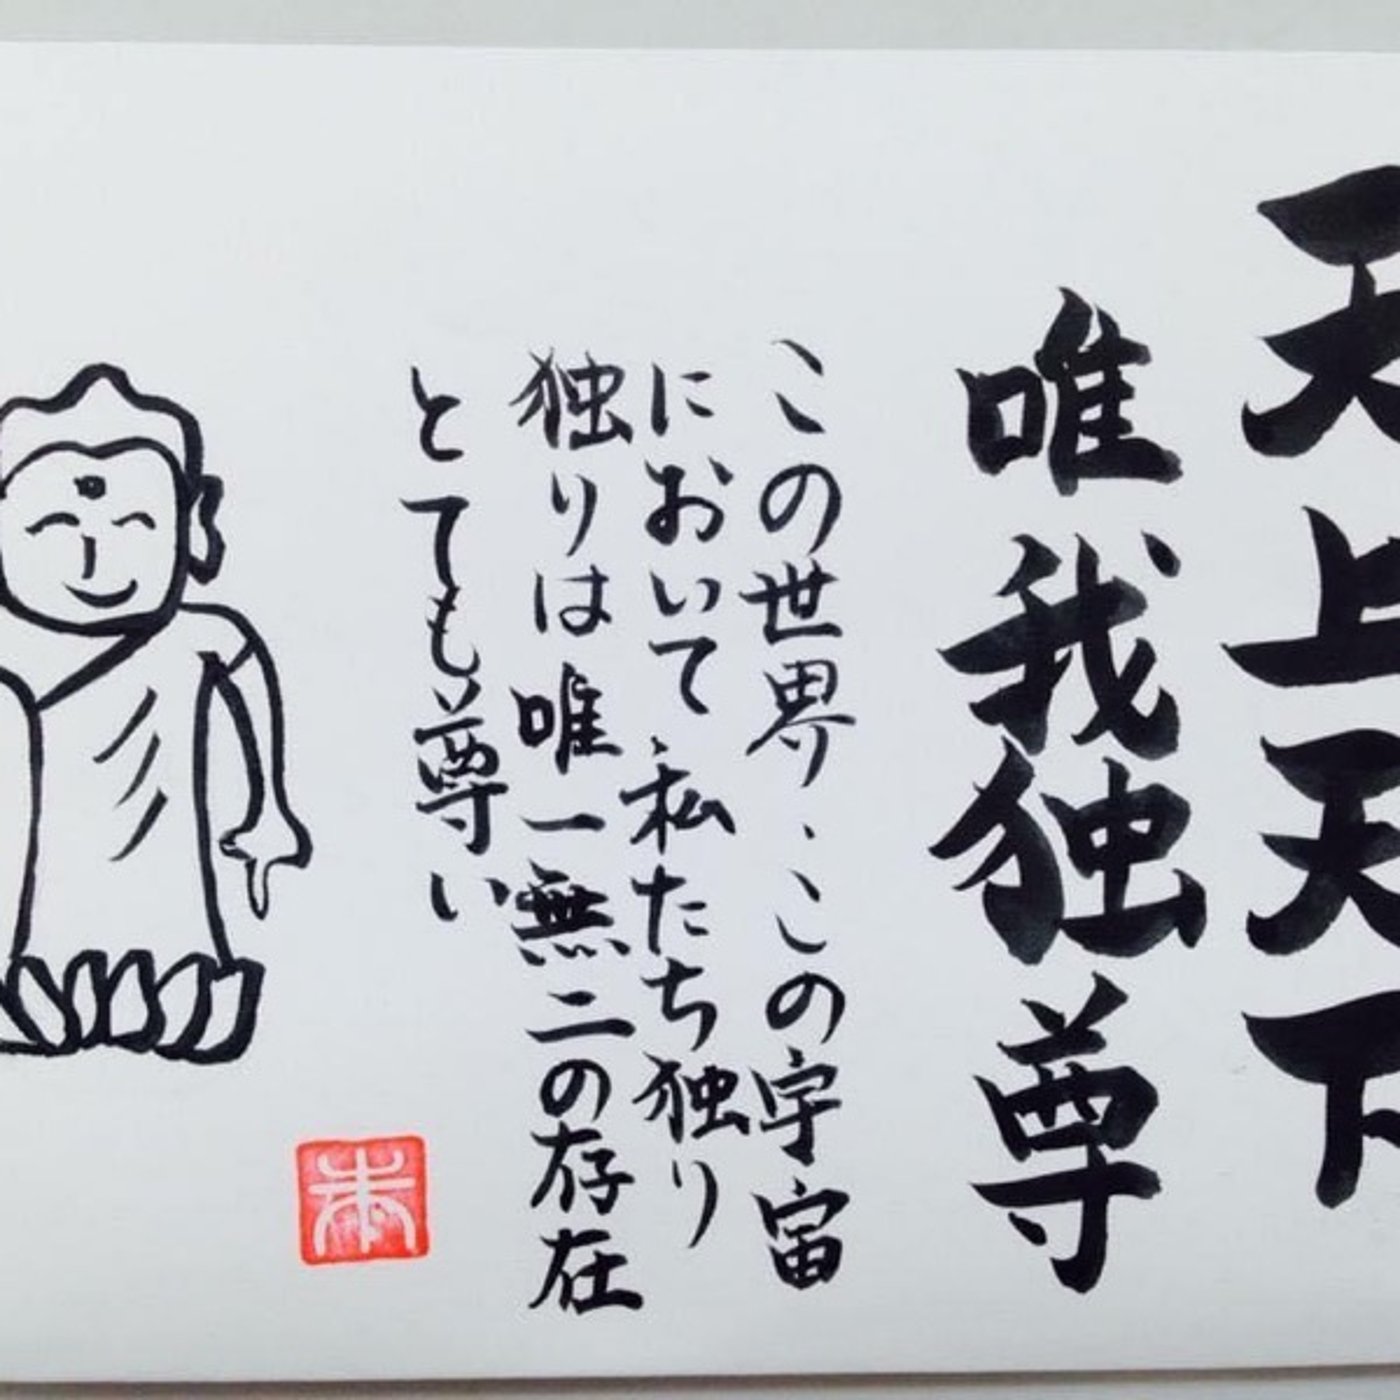 天上天下
唯我独尊
この世界、この宇宙
において、私たち独り
独りは唯一無二の存在
とても尊い